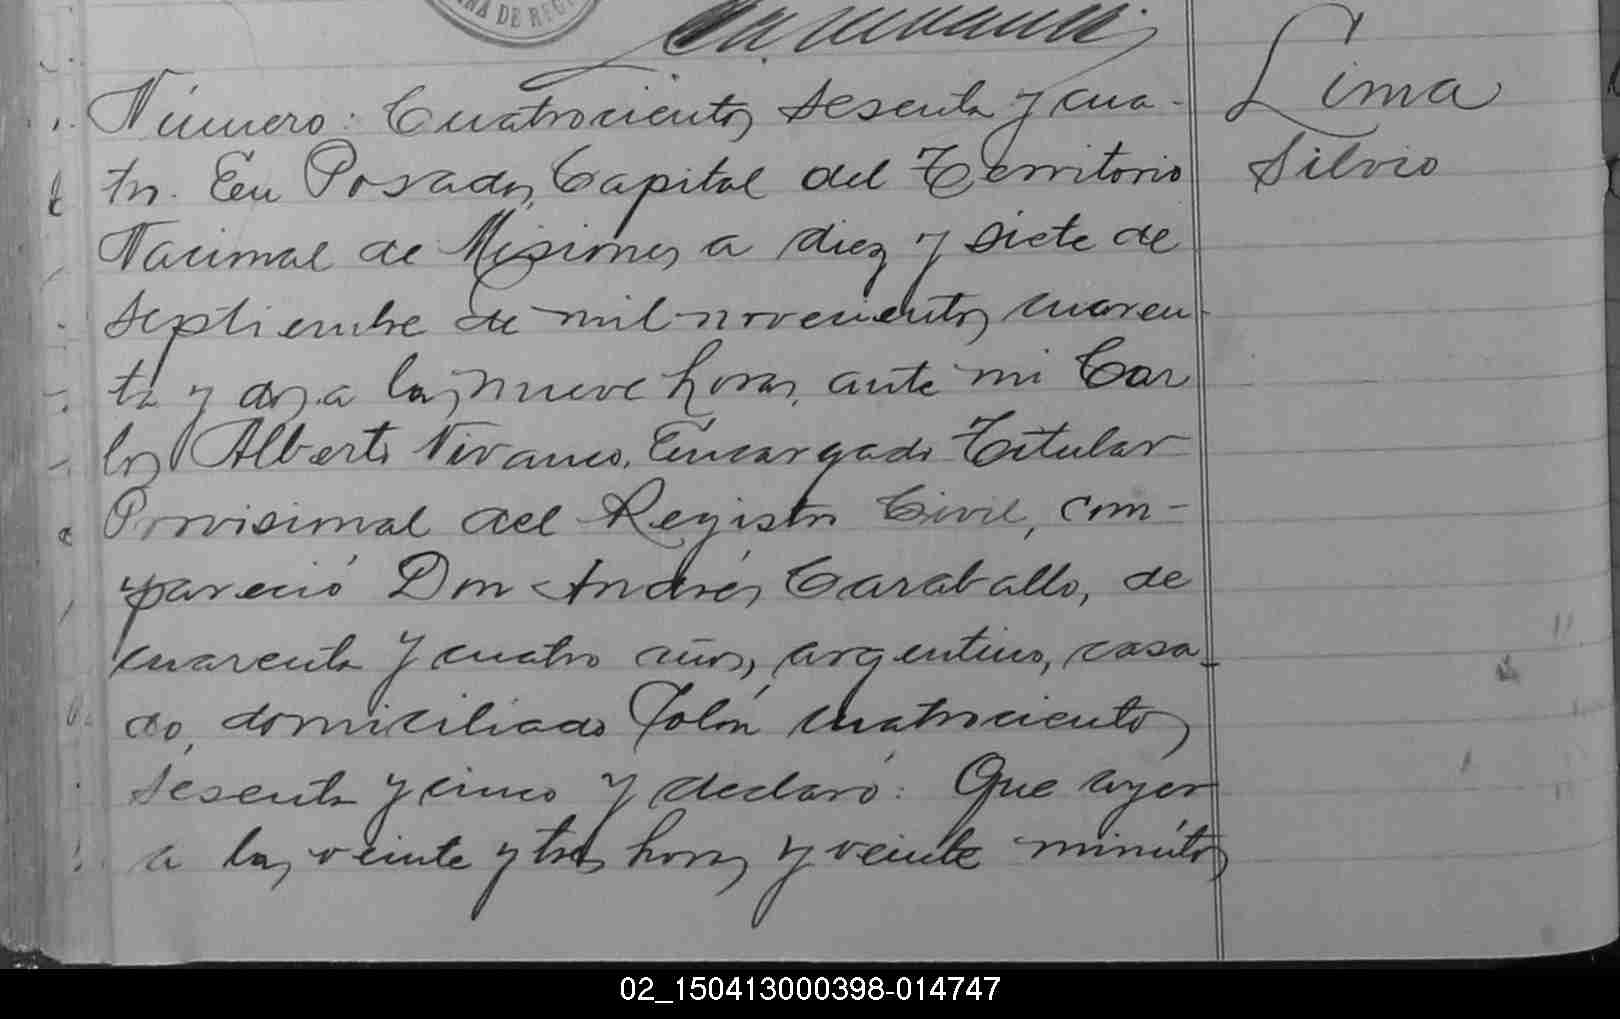 NA DE REG
Número: Cuatrocientos sesenta y cua-
tro. En Posadas, Capital del Territorio
Nacional de Misiones a diez y siete de
septiembre de mil novecientos cuaren-
ta y dos, a las nueve horas, ante mi Car
los Alberto Vivanco, Encargado Titular
Provisional del Registro Civil, com-
pareció Don Andrés Caraballo, de
cuarenta y cuatro años, argentino, casa-
do, domiciliado Colón cuatrocientos
sesenta y cinco y declaró: Que ayer
a las veinte y tres horas y veinte minutos
Lima
Silvio
02_150413000398-014747